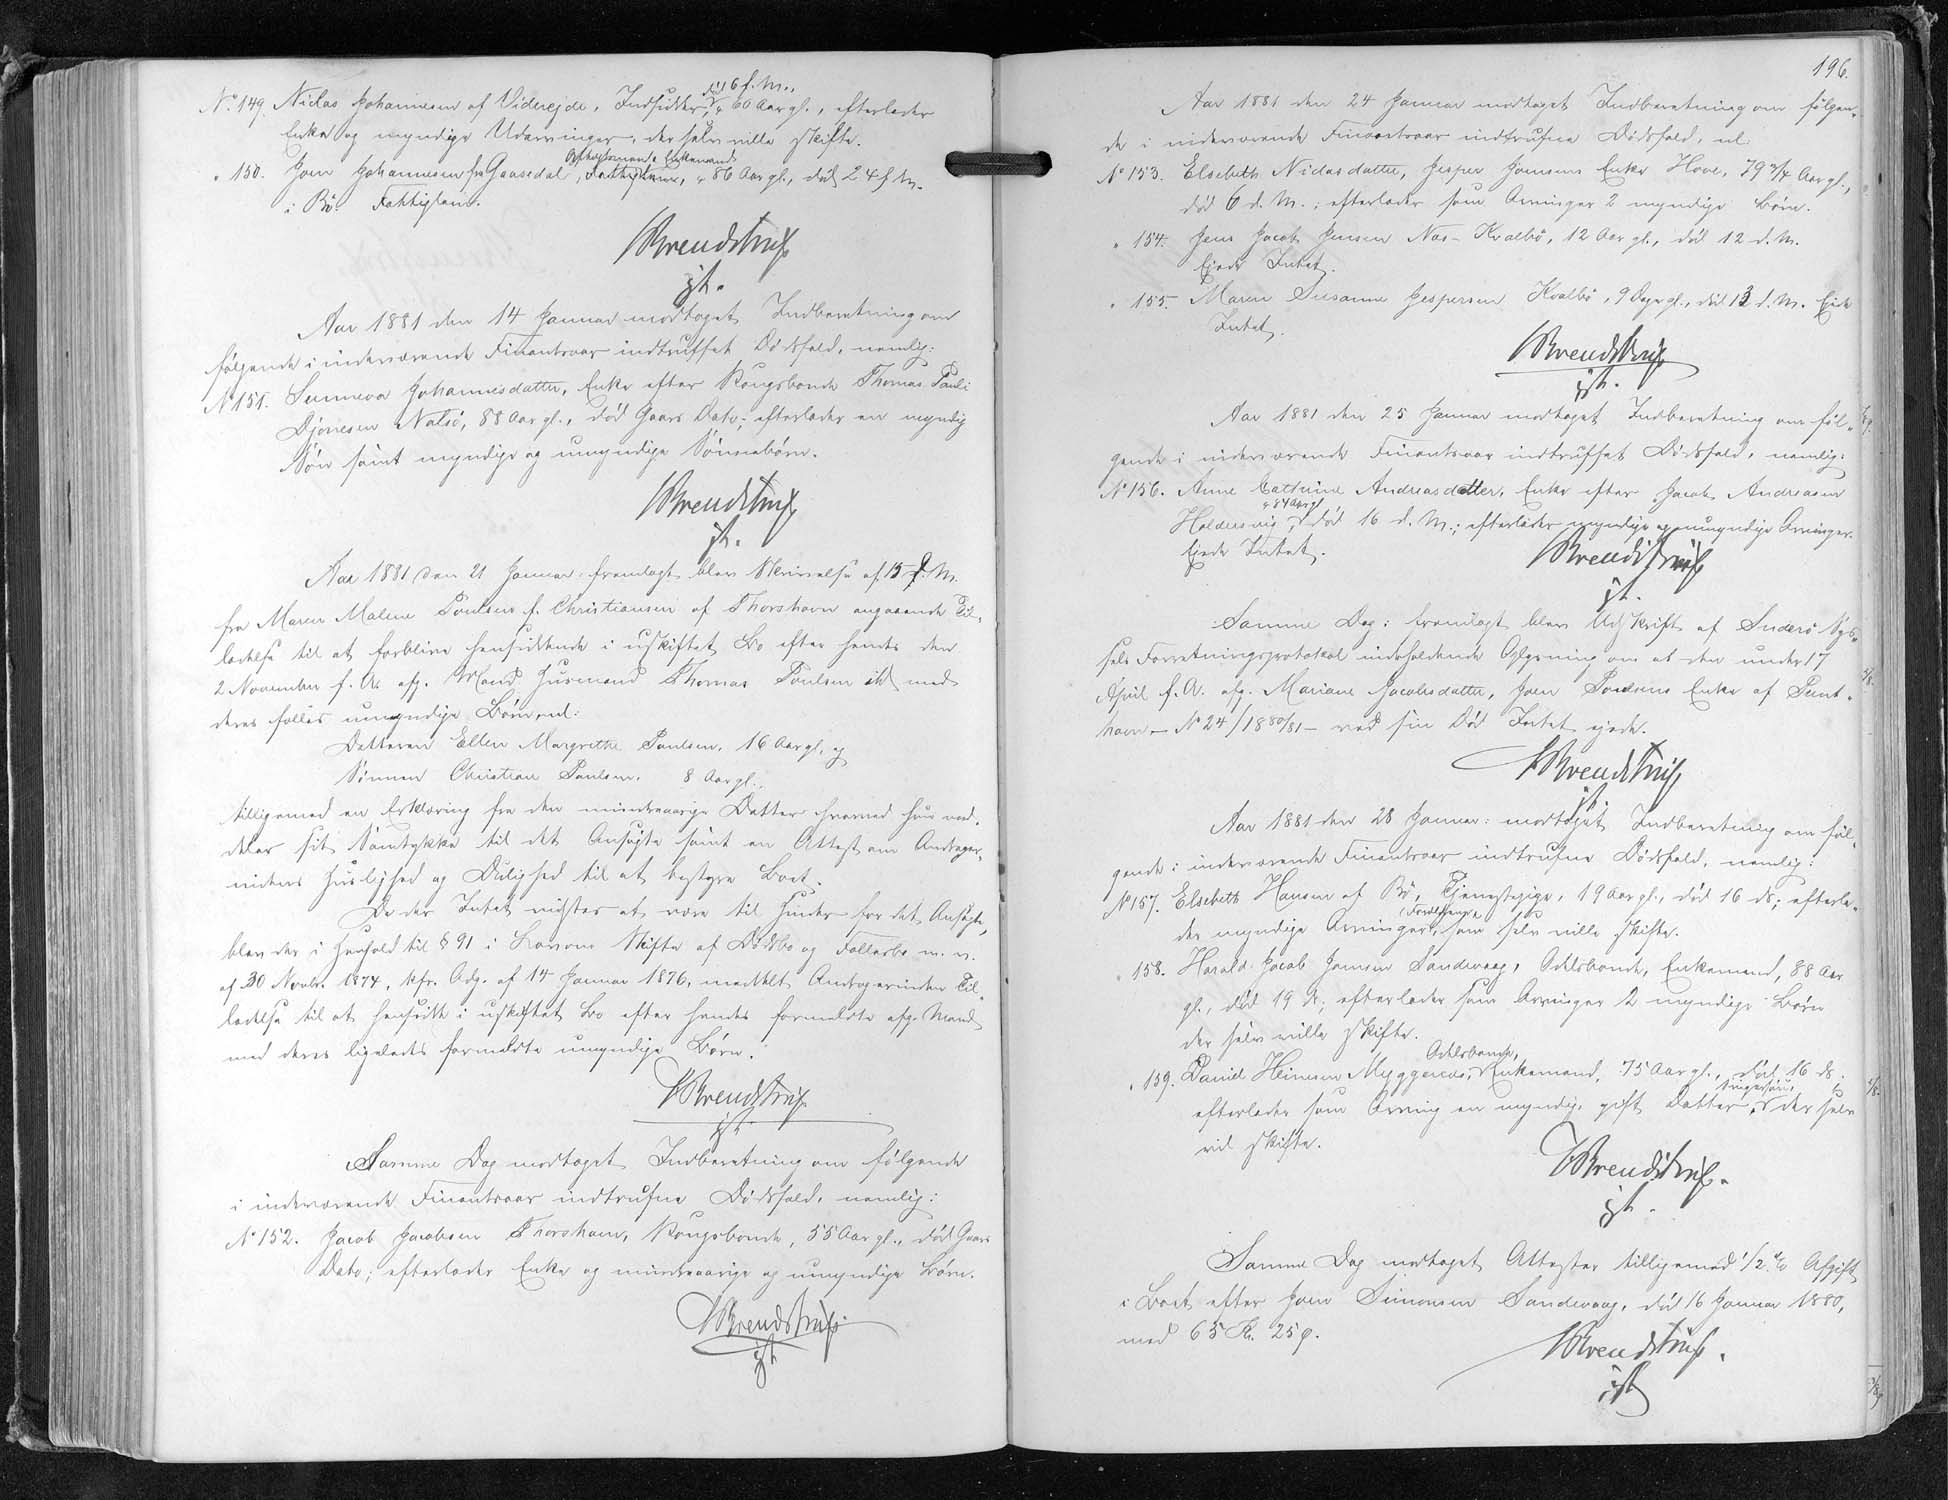 No 149. Niclas Johannesen af Viderejde, Indsidder, død 16 f. M., 60 Aar gl., efterlader
Enke og myndige Udarvinger, der selv ville skifte.
" 150. Joen Johannesen fra Gaasedal, Enkemand, 86 Aar gl., død 24 f. M.
i Bø. Fattiglem.
Brendstrup
Aar 1881 den 14 Januar modtaget Indberetning om
følgende i indeværende Finantsaar indtruffet Dødsfald, nemlig:
No 151. Sunneva Johannesdatter, Enke efter Kongsbonde Thomas Pauli
Djonesen Nalsø, 88 Aar gl., død Gaars Dato; efterlader en myndig
Søn samt myndige og umyndige Sønnebørn.
Brendstrup
Aar 1881 den 21 Januar fremlagt blev Skrivelse af 15 d. M.
fra Maren Malene Poulsen f. Christiansen af Thorshavn angaaende Til-
ladelse til at forblive hensiddende i uskiftet Bo efter hendes den
2 November f. A. afg. Mand Husmand Thomas Poulsen med
deres fælles umyndige Børn, nl:
Datteren Ellen Margrethe Poulsen, 16 Aar gl. og
Sønnen Christian Poulsen, 8 Aar gl.,
tilligemed en Erklæring fra den mindreaarige Datter hvorved hun med-
deler sit Samtykke til det Ansøgte samt en Attest om Andrager-
indens Huslighed og Dulighed til at bestyre Boet.
Da der Intet vidstes at være til Hinder for det Ansøgte,
blev der i Henhold til § 91 i Lov om Skifte af Dødsbo og Fællesbo m. v.
af 30 Novbr. 1874, kfr. Adg. af 14 Januar 1876, meddelt Andragerinden Til-
ladelse til at hensidde i uskiftet Bo efter hendes formeldte afg. Mand
med deres ligeledes formeldte umyndige Børn.
Brendstrup
Samme Dag modtaget Indberetning om følgende
i indeværende Finantsaar indtrufne Dødsfald, nemlig:
No 152. Jacob Jacobsen Thorshavn, Kongsbonde, 55 Aar gl., død Gaars
Dato; efterlader Enke og mindreaarige og umyndige Børn.
Brendstrup
196.
Aar 1881 den 24 Januar modtaget Indberetning om følgen-
de i indeværende Finantsaar indtrufne Dødsfald, nl
No 153. Elsebeth Niclasdatter, Jesper Joensens Enke Hove, 79 3/4 Aar gl.,
død 6 d. M.; efterlader som Arvinger 2 myndige Børn.
" 154. Jens Jacob Jensen Nes-Kvalbø, 12 Aar gl., død 12 d. M.
Ejede Intet.
" 155. Maren Susanne Jespersen Kvalbø, 9 Dage gl., død 13 d. M. Ejede
Intet.
Brendstrup
Aar 1881 den 25 Januar modtaget Indberetning om føl-
gende i indeværende Finantsaar indtruffet Dødsfald, nemlig:
No 156. Anne Cathrine Andreasdatter, Enke efter Jacob Andreasen
Haldersvig, 84 Aar gl. død 16 d. M.; efterlader myndige og umyndige Arvinger.
Ejede Intet.
Brendstrup
Samme Dag: fremlagt blev Udskrift af Suderø Sys-
sels Forretningsprotokol indeholdende Oplysning om at den under 17
April f. A. afg. Mariane Jacobsdatter, Joen Poulsens Enke af Punt-
havn - No 24/1880/81 - ved sin Død Intet ejede.
Brendstrup
Aar 1881 den 28 Januar: modtaget Indberetning om føl-
gende i indeværende Finantsaar indtrufne Dødsfald, nemlig:
No 157. Elsebeth Hansen af Bø, Tjenestepige, 19 Aar gl., død 16 ds; efterla-
der myndige Arvinger (Forældrene), som selv ville skifte.
" 158. Harald Jacob Joensen Sandevaag, Odelsbonde, Enkemand, 88 Aar
gl., død 19 ds; efterlader som Arvinger 2 myndige Børn
der selv ville skifte.
" 159. Daniel Heinesen Myggenæs, Odelsbonde, Enkemand, 75 Aar gl., død 16 ds.
efterlader som Arving en myndig, gift Datter, der selv
vil skifte.
Brendstrup.
Samme Dag modtaget Attester tilligemed 1/2 % Afgift
i Boet efter Joen Simonsen Sandevaag, død 16 Januar 1880,
med 65 Kr. 25 Ø.
Brendstrup.